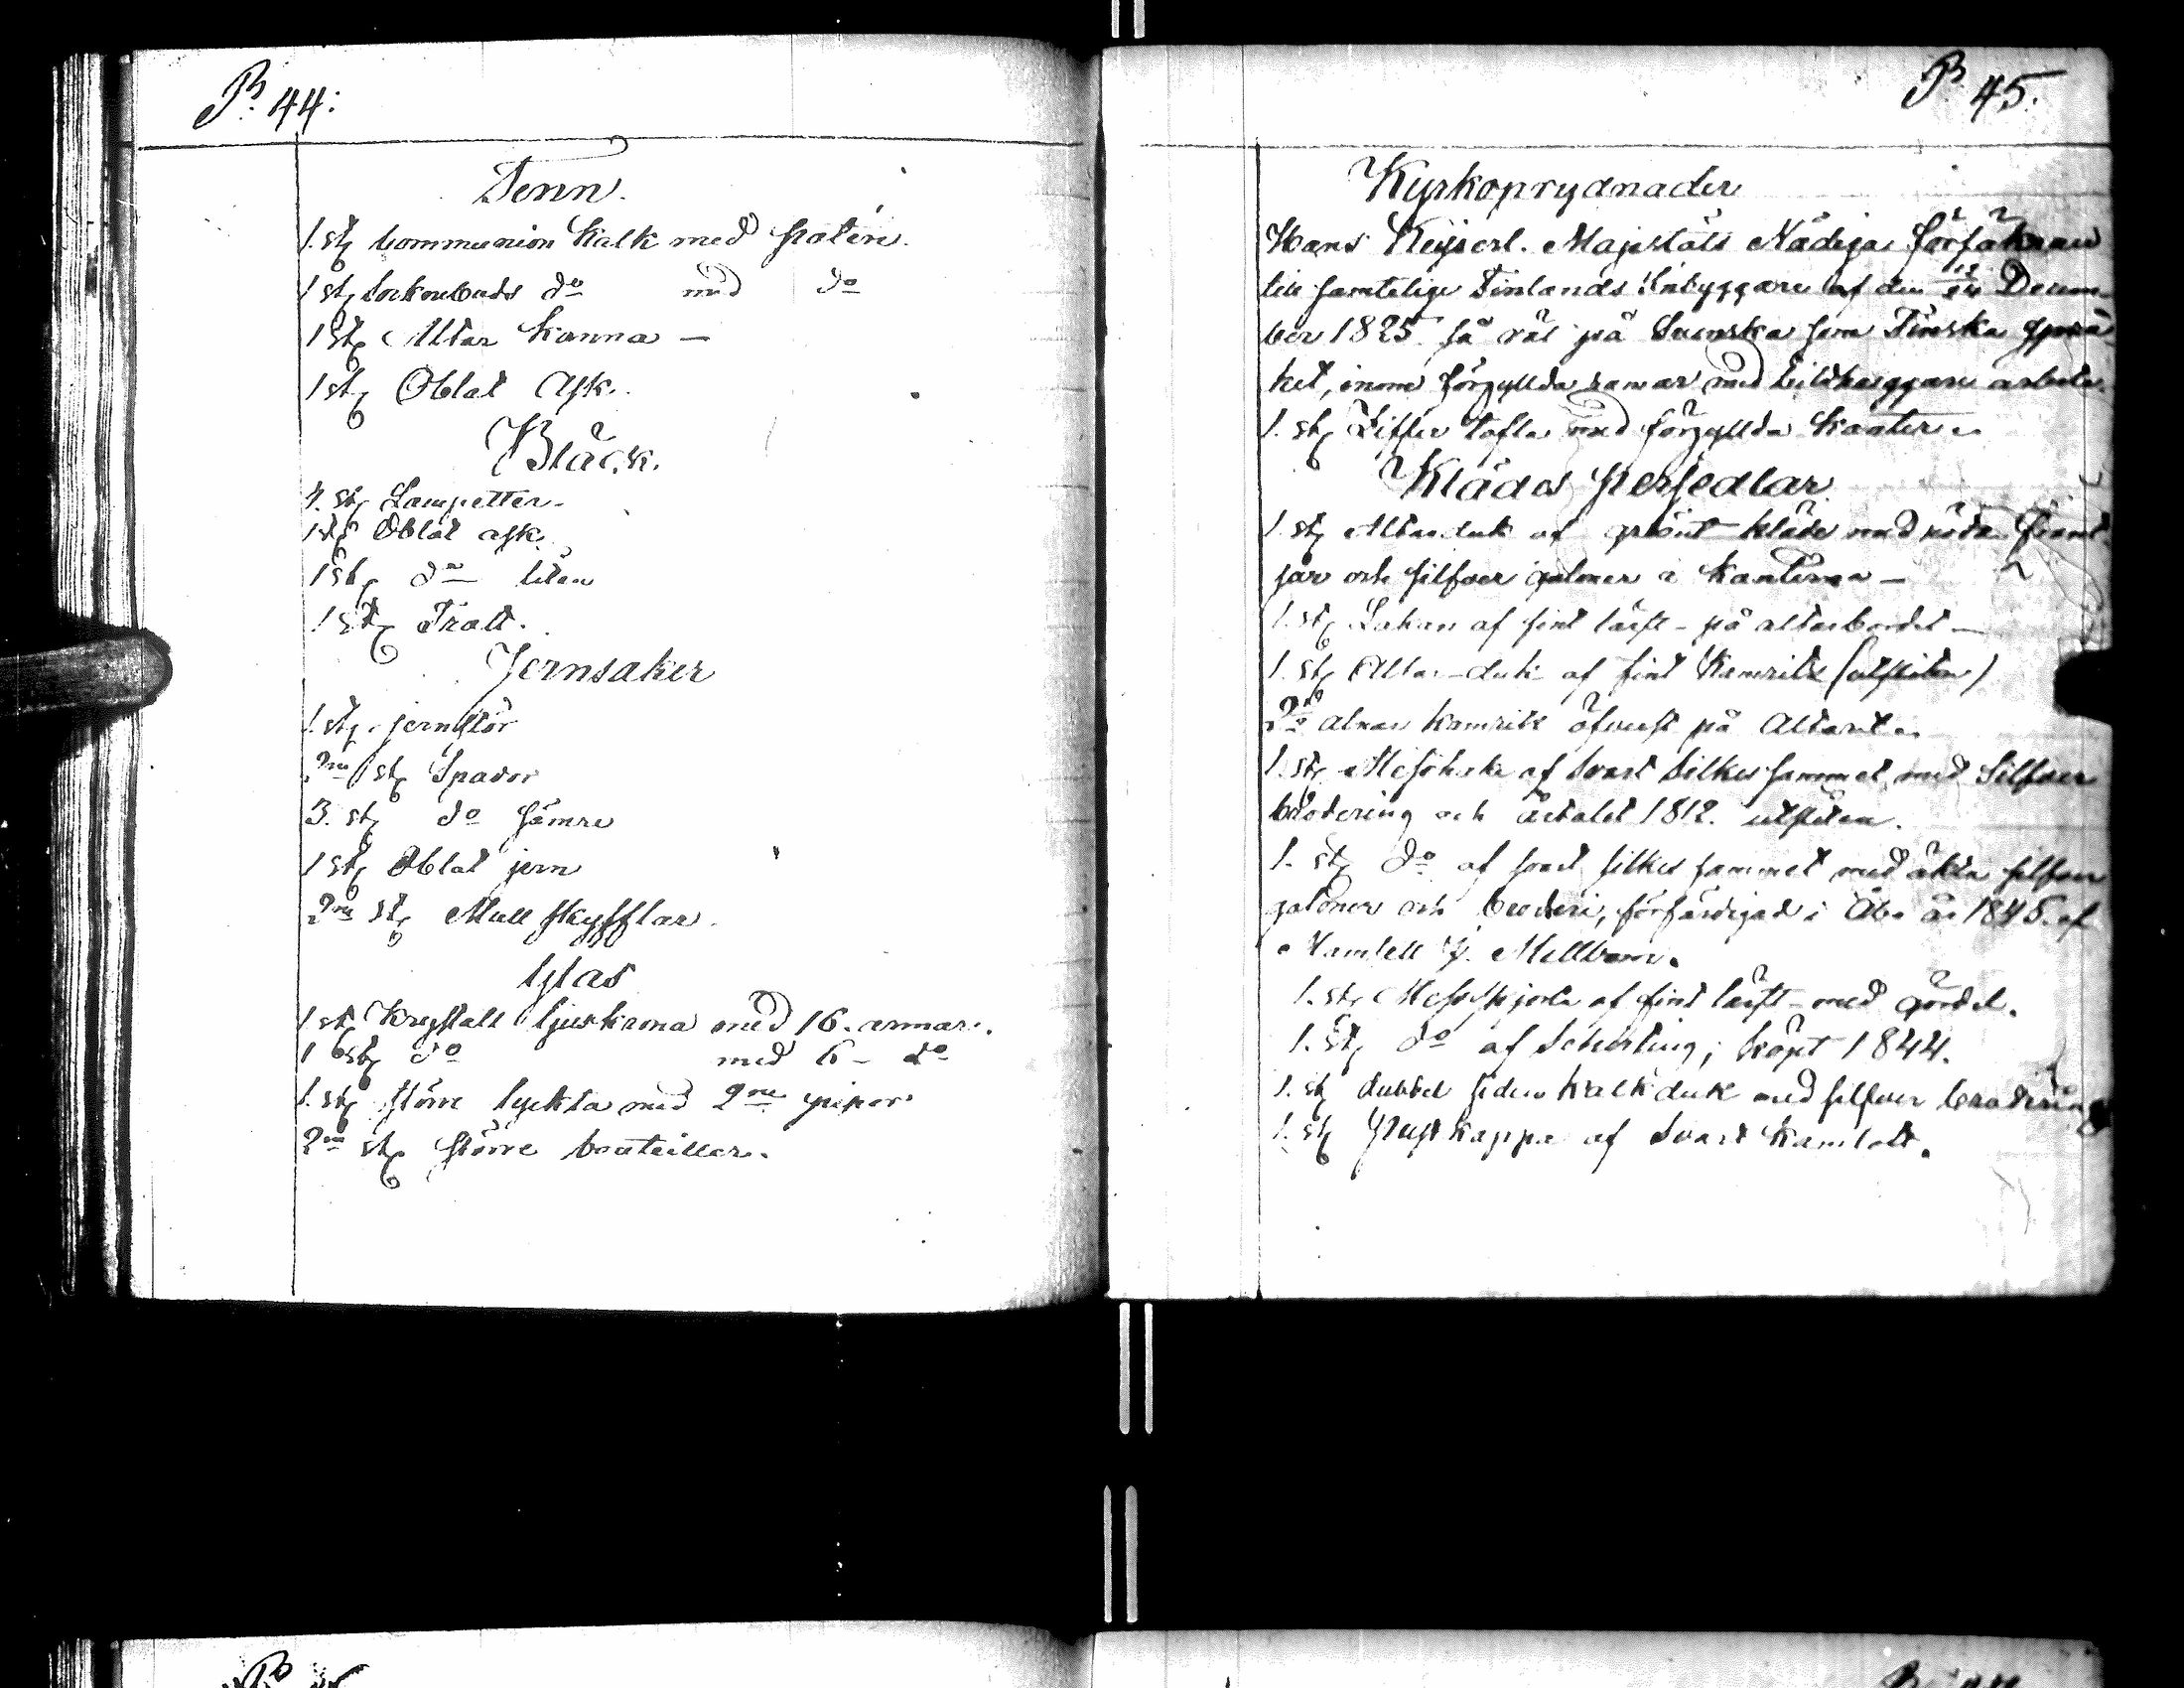 P. 44:
Tenn.
1. st. Communion Kalk med paten.
1 st. Sockenbuds do med do
1 st. Altar Kanna —
1 st. Oblat Ask.
Bläck.
4. st. Lampetter.
1 st. Oblat ask.
1 st. do liten
1 st. Tratt.
Jernsaker
1. st. jernstör
2ne st. Spador
3. st. do sämre
1 st. Oblat jern
2ne st. Mull skyfflar.
Glas
1 st. Krystall ljuskrona med 16. armar.
1 st. do med 6 - do
1. st. större lyckta med 2ne pipor
2ne st. större bouteiller.
P. 45.
Kyrkoprydnader
Hans Kejserl. Majestäts Nådiga Försäkran
till samtelige Finlands Inbyggare af den Decem-
ber 1825 så väl på Svenska som Finska språ
ket, inom förgyllda ramar med bildhuggare arbete.
1. st. Siffer tafla med förgyllda kanter.
Klädes persedlar.
1. st. Altarduk af grönt kläde med röda frant
sar och silfver galoner i kanterna —
1. st. Lakan af fint lärft - på altarbordet —
1. st. Altar-duk af fint Kamrik (utsliten)
alnar kamrik öfverst på Altaret.
1. st. Messhake af Svart Silkes sammet, med Silfver
brodering och årtalet 1812. utsliten.
1. st. do af svart silkes sammet med äkta silfver
galoner och broderi, förfärdigad i Åbo år 1845. af
Mamsell Mellbom.
1. st. Messskjorta af fint lärft med gördel.
1. st. do af Schirting; köpt 1844.
1. st. dubbel siden kalkduk med silfver brodering
1. st. Prestkappa af Svart Kamlott.